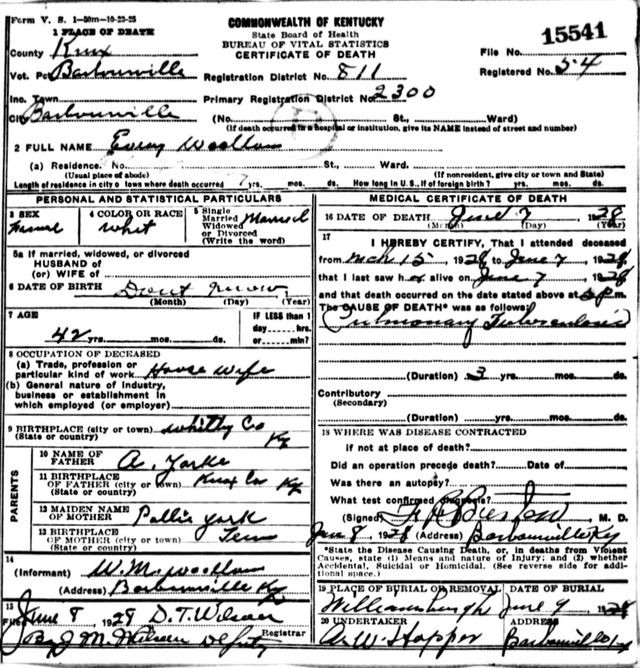 Form V. S. 1-50m-10-23-25
COMMONWEALTH OF KENTUCKY
State Board of Health
BUREAU OF VITAL STATISTICS
CERTIFICATE OF DEATH
15541
File No.
Registered No. 54
1 PLACE OF DEATH
County Knox
Vot. Pc Barbourville
Registration District No. 811
Inc. Town
Primary Registration District No. 2300
City Barbourville
(No. St., Ward)
(If death occurred in a hospital or institution, give its NAME instead of street and number)
2 FULL NAME
(a) Residence. No. St., Ward.
(Usual place of abode) (If nonresident, give city or town and State)
Length of residence in city or town where death occurred yrs. mos. ds. How long in U. S., if of foreign birth? yrs. mos. ds.
PERSONAL AND STATISTICAL PARTICULARS
3 SEX
4 COLOR OR RACE
whit
5 Single
Married Married
Widowed
or Divorced
(Write the word)
5a If married, widowed, or divorced
HUSBAND of
(or) WIFE of
6 DATE OF BIRTH
(Month) (Day) (Year)
7 AGE
42 yrs. mos. ds.
IF LESS than 1
day hrs.
or min.
8 OCCUPATION OF DECEASED
(a) Trade, profession or
particular kind of work House Wife
(b) General nature of Industry,
business or establishment in
which employed (or employer)
9 BIRTHPLACE (city or town) Whitly Co
(State or country) Ky
PARENTS
10 NAME OF
FATHER A. Yorke
11 BIRTHPLACE
OF FATHER (city or town) Knox Co Ky
(State or country)
12 MAIDEN NAME
OF MOTHER Pallie York
13 BIRTHPLACE
OF MOTHER (city or town) Tenn
(State or country)
14
(Informant) W. M. Woollum
(Address) Barbourville Ky
15
Filed June 8 1928 D. T. Wilson
Registrar
By J M. Wilson Deputy
MEDICAL CERTIFICATE OF DEATH
16 DATE OF DEATH June 7 1928
(Month) (Day) (Year)
17
I HEREBY CERTIFY, That I attended deceased
from Mch 15 1928 to June 7 1928
that I last saw h alive on June 7 1928
and that death occurred on the date stated above at P m.
The CAUSE OF DEATH* was as follows:
Pulmonary Tuberculosis
(Duration) 3 yrs. mos. ds.
Contributory
(Secondary)
(Duration) yrs. mos. ds.
18 WHERE WAS DISEASE CONTRACTED
if not at place of death?
Did an operation precede death? Date of
Was there an autopsy?
What test confirmed diagnosis?
(Signed) M. D.
June 8 1928 (Address) Barbourville Ky
*State the Disease Causing Death, or, in deaths from Violent
Causes, state (1) Means and nature of Injury; and (2) whether
Accidental, Suicidal or Homicidal. (See reverse side for addi-
tional space.)
19 PLACE OF BURIAL OR REMOVAL DATE OF BURIAL
Williamsburg Ky June 9 1928
20 UNDERTAKER ADDRESS
A. W. Hopper Barbourville Ky